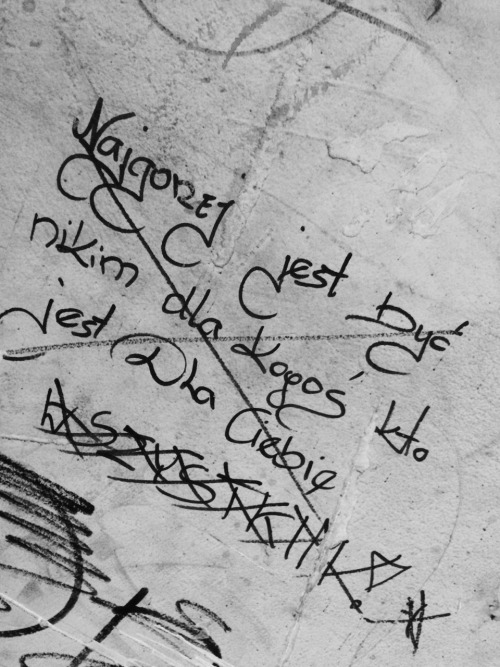 Najgorzej jest być
nikim dla kogoś, kto
jest Dla Ciebie
wszystkim